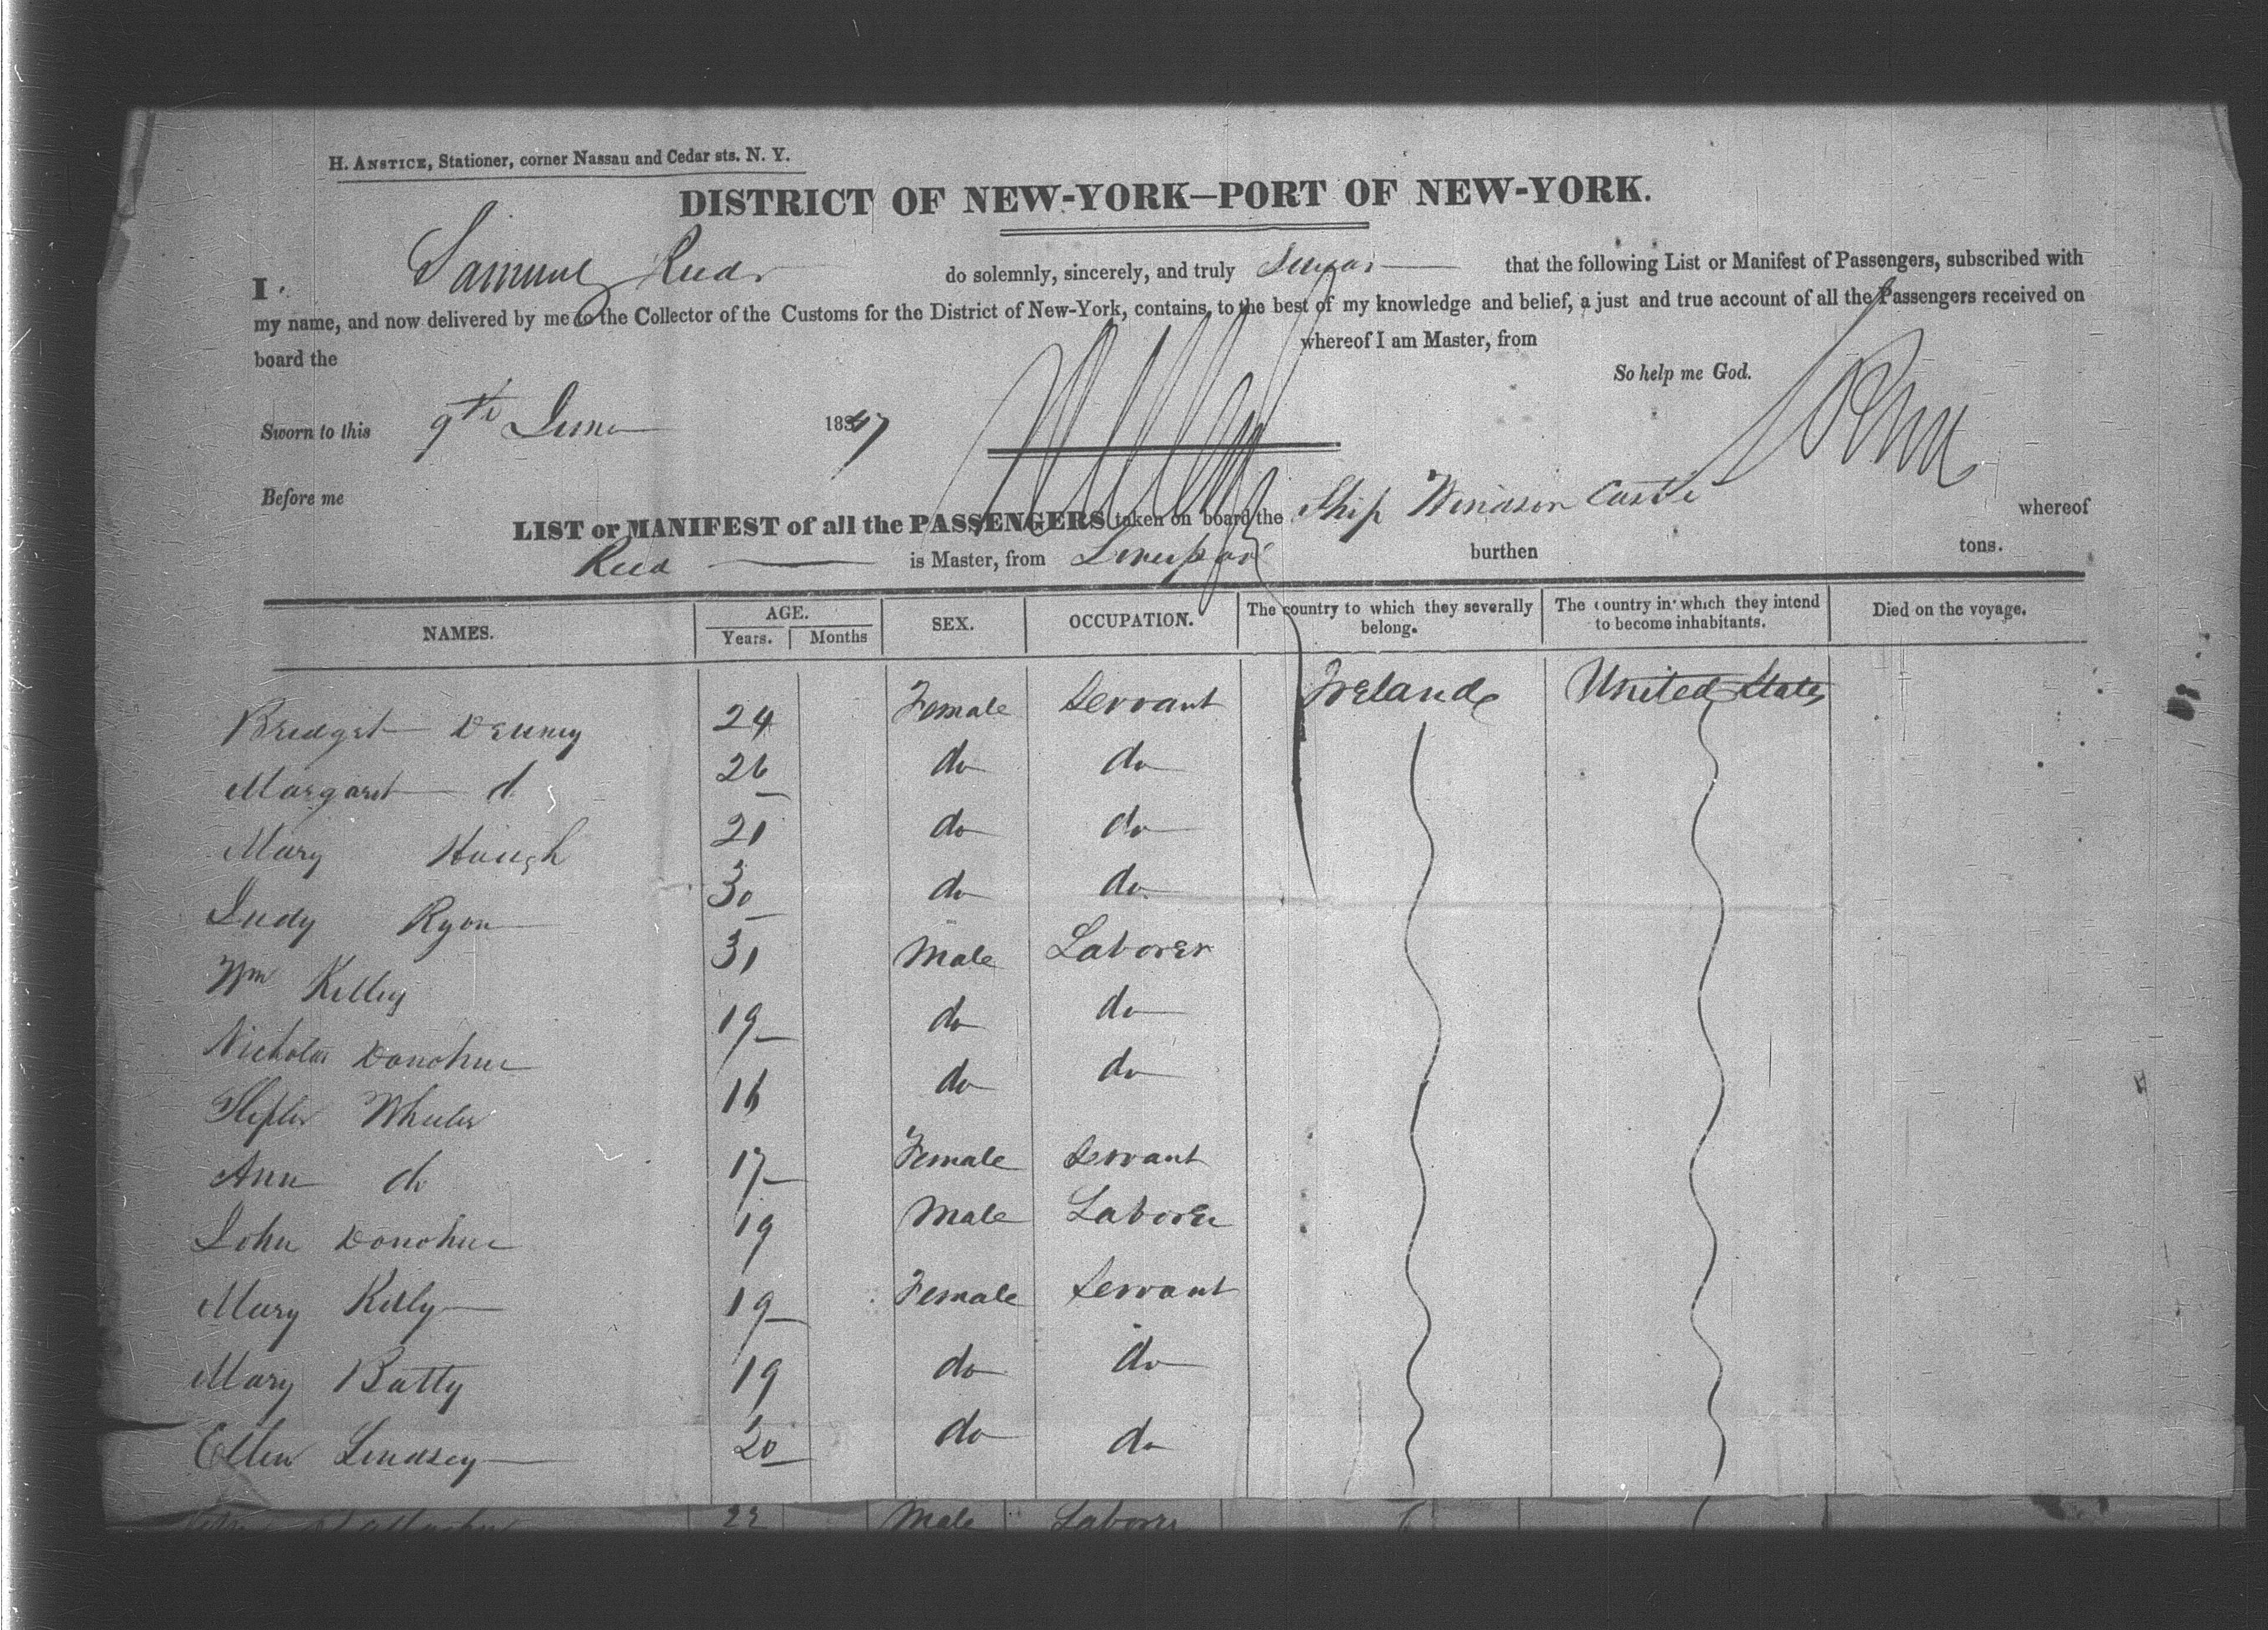 H. ANSTICE, Stationer, corner Nassau and Cedar sts. N. Y.
DISTRICT OF NEW-YORK—PORT OF NEW-YORK.
I Samuel Reed do solemnly, sincerely, and truly Swear that the following List or Manifest of Passengers, subscribed with
my name, and now delivered by me to the Collector of the Customs for the District of New-York, contains, to the best of my knowledge and belief, a just and true account of all the Passengers received on
board the whereof I am Master, from
So help me God.
Sworn to this 9th June 1847
Before me
LIST or MANIFEST of all the PASSENGERS taken on board the Ship Windsor Castle whereof
Reed is Master, from Liverpool burthen tons.
NAMES. AGE. Years. Months SEX. OCCUPATION. The country to which they severally belong. The country in which they intend to become inhabitants. Died on the voyage.
Bridget Denny 24 Female Servant Ireland United States
Margaret d 26 do do
Mary Hough 21 do do
Judy Ryon 30 do do
Wm Kelley 31 Male Laborer
Nicholas Donohue 19 do do
Wheeler 16 do do
Ann do 17 Female Servant
John Donohue 19 Male Laborer
Mary Kelly 19 Female Servant
Mary Batty 19 do do
Ellen Lindsey 20 do do
22 Male Laborer